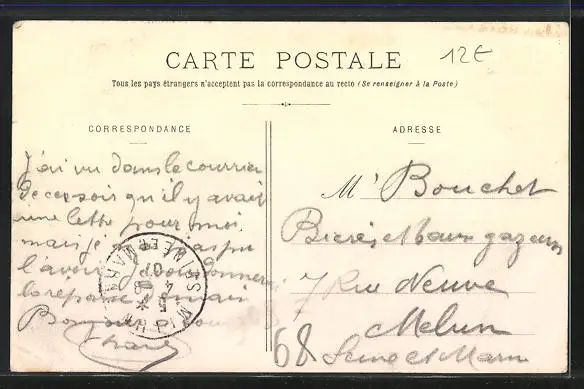 12€
CARTE POSTALE
Tous les pays étrangers n'acceptent pas la correspondance au recto (Se renseigner à la Poste)
CORRESPONDANCE
J'ai vu dans le courrier
de ce soir qu'il y avait
une lettre pour moi
mais je pas pu
l'avoir donnerai
la réponse demain
Bonjour
ADRESSE
Mr Bouchet
Bières et eaux gazeuses
7 Rue Neuve
Melun
68 Seine et Marne